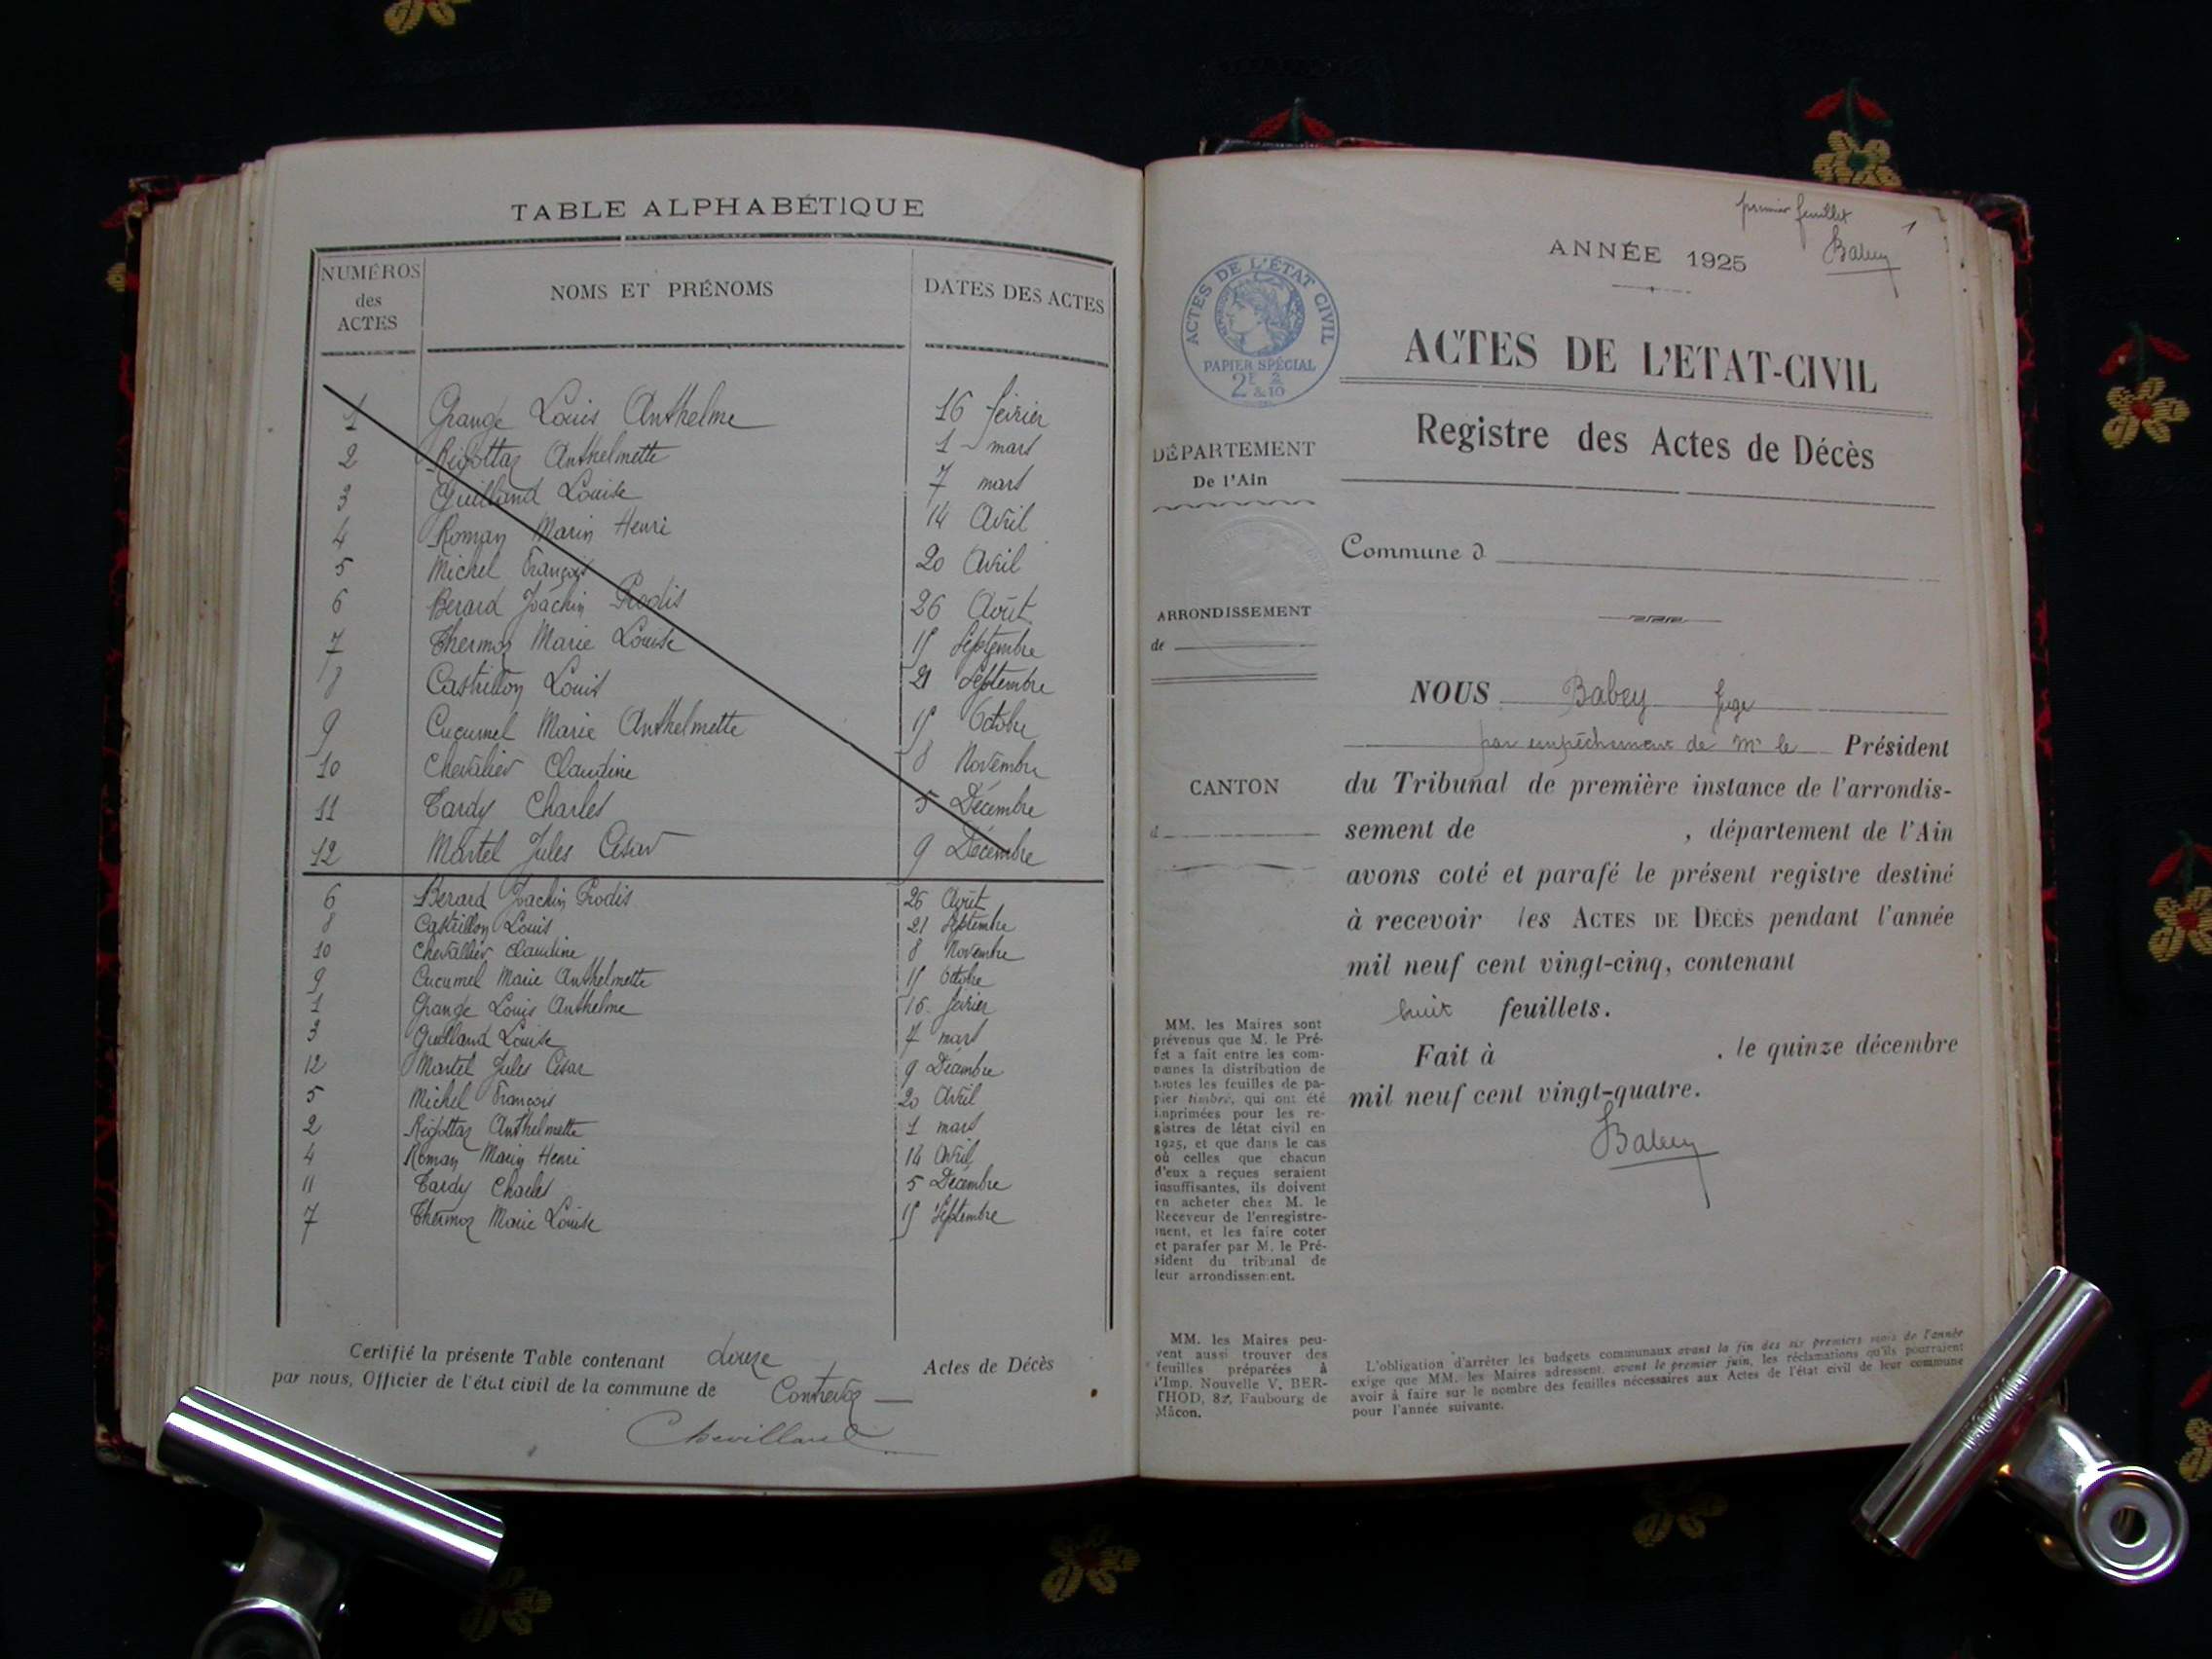 TABLE ALPHABÉTIQUE
NUMÉROS des ACTES NOMS ET PRÉNOMS DATES DES ACTES
1 Grange Louis Anthelme 16 février
2 Rigottaz Anthelmette 1 mars
3 Guilland Louise 7 mars
4 Roman Marin Henri 14 Avril
5 Michel François 20 Avril
6 Berard Joachin Prodis 26 Août
7 Thermoz Marie Louise 15 Septembre
8 Castillon Louis 21 Septembre
9 Cucumel Marie Anthelmette 15 Octobre
10 Chevalier Claudine 8 Novembre
11 Tardy Charles 5 Décembre
12 Martel Jules César 9 Décembre
6 Berard Joachin Prodis 26 Août
8 Castillon Louis 21 Septembre
10 Chevallier Claudine 8 Novembre
9 Cucumel Marie Anthelmette 15 Octobre
1 Grange Louis Anthelme 16 février
3 Guilland Louise 7 mars
12 Martel Jules César 9 Décembre
5 Michel François 20 Avril
2 Rigottaz Anthelmette 1 mars
4 Roman Marin Henri 14 Avril
11 Tardy Charles 5 Décembre
7 Thermoz Marie Louise 15 Septembre
Certifié la présente Table contenant douze Actes de Décès
par nous, Officier de l'état civil de la commune de Contrevoz
Chevillard
premier feuillet 1
Babey
ANNÉE 1925
ACTES DE L'ÉTAT CIVIL
PAPIER SPÉCIAL
2F & 2/10
ACTES DE L'ETAT-CIVIL
Registre des Actes de Décès
DÉPARTEMENT
De l'Ain
Commune d
ARRONDISSEMENT
de
CANTON
d
NOUS Babey Juge
par empêchement de Mr le Président
du Tribunal de première instance de l'arrondis-
sement de , département de l'Ain
avons coté et parafé le présent registre destiné
à recevoir les ACTES DE DÉCÈS pendant l'année
mil neuf cent vingt-cinq, contenant
huit feuillets.
Fait à , le quinze décembre
mil neuf cent vingt-quatre.
Babey
MM. les Maires sont
prévenus que M. le Pré-
fet a fait entre les com-
munes la distribution de
toutes les feuilles de pa-
pier timbré, qui ont été
imprimées pour les re-
gistres de létat civil en
1925, et que dans le cas
où celles que chacun
d'eux a reçues seraient
insuffisantes, ils doivent
en acheter chez M. le
Receveur de l'enregistre-
ment, et les faire coter
et parafer par M. le Pré-
sident du tribunal de
leur arrondissement.
MM. les Maires peu-
vent aussi trouver des
feuilles préparées à
l'Imp. Nouvelle V. BER-
THOD, 82, Faubourg de
Mâcon.
L'obligation d'arrêter les budgets communaux avant la fin des six premiers mois de l'année
exige que MM. les Maires adressent, avant le premier juin, les réclamations qu'ils pourraient
avoir à faire sur le nombre des feuilles nécessaires aux Actes de l'état civil de leur commune
pour l'année suivante.